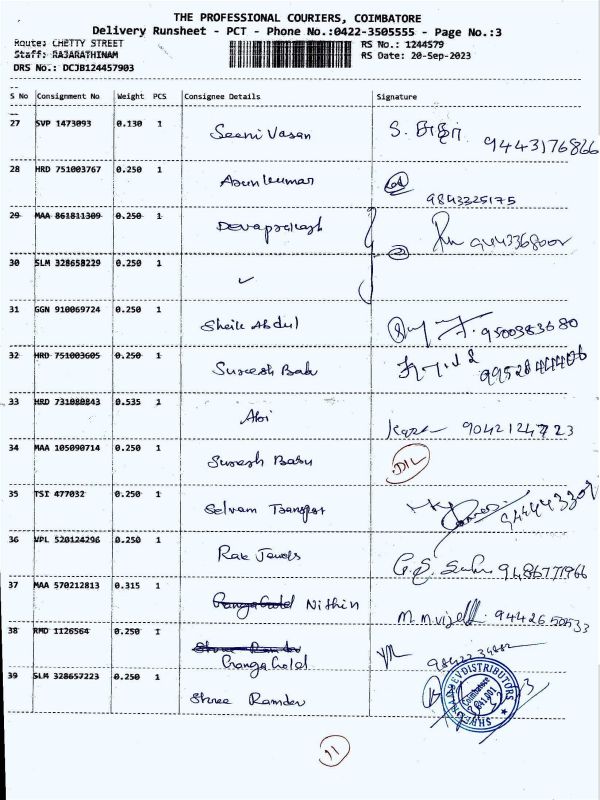 THE PROFESSIONAL COURIERS, COIMBATORE
Delivery Runsheet - PCT - Phone No.:0422-3505555 - Page No.:3
Route: CHETTY STREET RS No.: 1244579
Staff: RAJARATHINAM RS Date: 20-Sep-2023
DRS No.: DCJB124457903
S No Consignment No Weight PCS Consignee Details Signature
27 SVP 1473093 0.130 1 Seeni Vasan 9443176866
28 HRD 751003767 0.250 1 Arunkumar 9843225175
29 MAA 861811309 0.250 1 Devaprakash
30 SLM 328658229 0.250 1 ✓
31 GGN 910069724 0.250 1 Sheik Abdul 9500383680
32 HRD 751003605 0.250 1 Suresh Babu
33 HRD 731080843 0.535 1 Abi
34 MAA 105090714 0.250 1 Suresh Babu DIL
35 TSI 477032 0.250 1 Selvam Transport
36 VPL 520124296 0.250 1 9486771966
37 MAA 570212813 0.315 1 Ranga Gold Nithin 9442650533
38 RMD 1126564 0.250 1 Shree Ramdev
Ranga Gold
39 SLM 328657223 0.250 1 Shree Ramdev
11